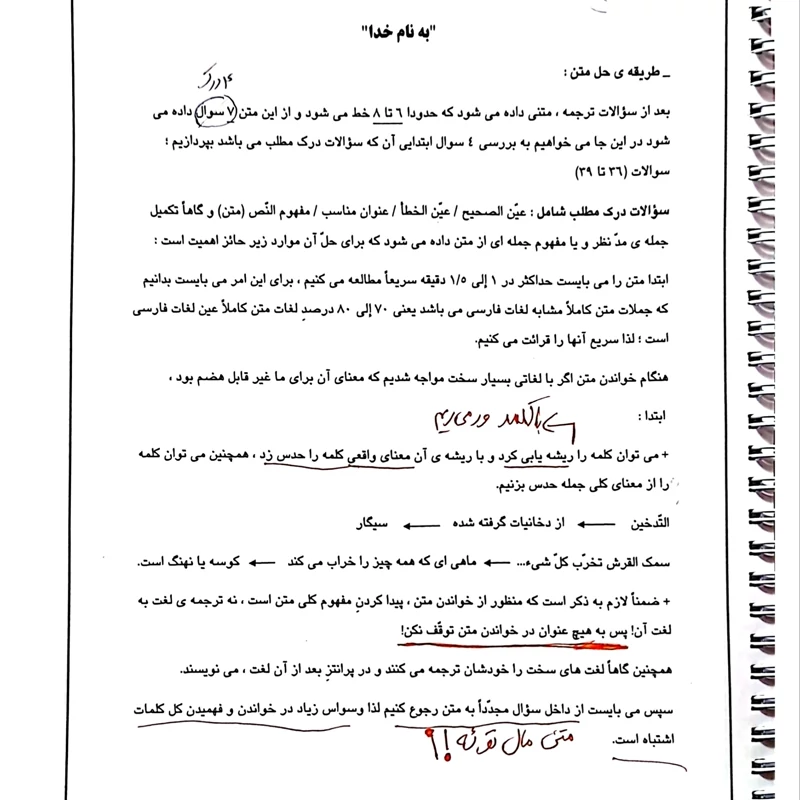 "به نام خدا"
_ طریقه ی حل متن :
۴ درک
بعد از سؤالات ترجمه ، متنی داده می شود که حدودا ۶ تا ۸ خط می شود و از این متن ۷ سوال داده می
شود در این جا می خواهیم به بررسی ٤ سوال ابتدایی آن که سؤالات درک مطلب می باشد بپردازیم ؛
سوالات (۳٦ تا ۳۹)
سؤالات درک مطلب شامل : عیّن الصحیح / عیّن الخطأ / عنوان مناسب / مفهوم النّص (متن) و گاهاً تکمیل
جمله ی مدّ نظر و یا مفهوم جمله ای از متن داده می شود که برای حلّ آن موارد زیر حائز اهمیت است :
ابتدا متن را می بایست حداکثر در ۱ إلی ۱/۵ دقیقه سریعاً مطالعه می کنیم ، برای این امر می بایست بدانیم
که جملات متن کاملاً مشابه لغات فارسی می باشد یعنی ۷۰ إلی ۸۰ درصدِ لغات متن کاملاً عین لغات فارسی
است ؛ لذا سریع آنها را قرائت می کنیم.
هنگام خواندن متن اگر با لغاتی بسیار سخت مواجه شدیم که معنای آن برای ما غیر قابل هضم بود ،
ابتدا :
با کلمه ور می‌ریم
+ می توان کلمه را ریشه یابی کرد و با ریشه ی آن معنای واقعی کلمه را حدس زد ، همچنین می توان کلمه
را از معنای کلی جمله حدس بزنیم.
التّدخین ← از دخانیات گرفته شده ← سیگار
سمک القرش تخرّب کلّ شیء... ← ماهی ای که همه چیز را خراب می کند ← کوسه یا نهنگ است.
+ ضمناً لازم به ذکر است که منظور از خواندن متن ، پیدا کردنِ مفهوم کلی متن است ، نه ترجمه ی لغت به
لغت آن! پس به هیچ عنوان در خواندن متن توقّف نکن!
همچنین گاهاً لغت های سخت را خودشان ترجمه می کنند و در پرانتزِ بعد از آن لغت ، می نویسند.
سپس می بایست از داخل سؤال مجدّداً به متن رجوع کنیم لذا وسواس زیاد در خواندن و فهمیدن کل کلمات
اشتباه است.
متن مال تو نه !؟